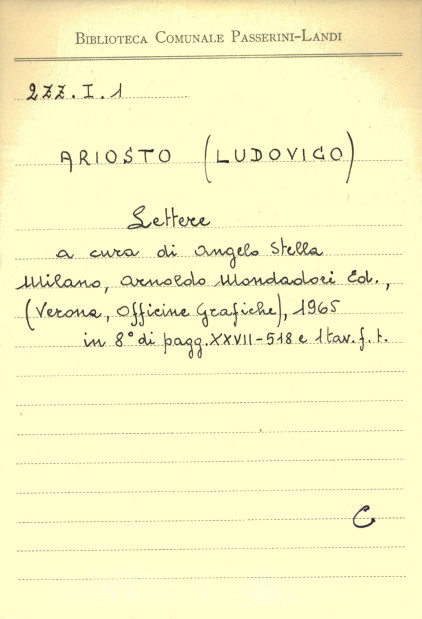 BIBLIOTECA COMUNALE PASSERINI-LANDI
2ZZ.I.1
ARIOSTO (LUDOVICO)
Lettere
a cura di Angelo Stella
Milano, Arnoldo Mondadori Ed.,
(Verona, Officine Grafiche), 1965
in 8° di pagg. XXVII-518 e 1 tav. f. t.
C